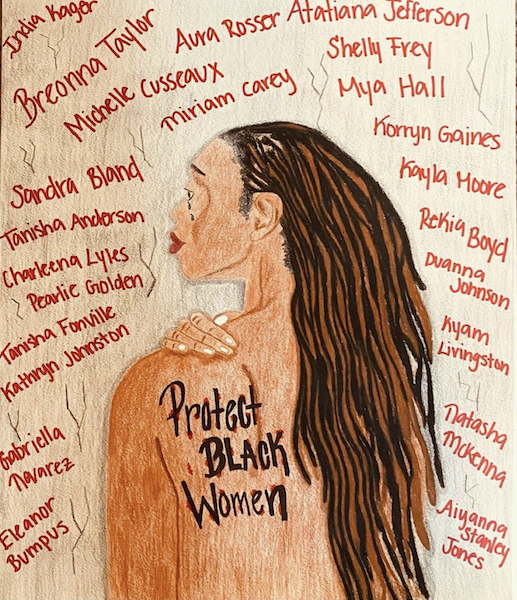 India Kager
Breonna Taylor
Michelle Cusseaux
Aura Rosser
Miriam Carey
Atatiana Jefferson
Shelly Frey
Mya Hall
Korryn Gaines
Kayla Moore
Rekia Boyd
Duanna
Johnson
Kyam
Livingston
Natasha
McKenna
Aiyanna
Stanley
Jones
Sandra Bland
Tanisha Anderson
Charleena Lyles
Pearlie Golden
Tanisha Fonville
Kathryn Johnston
Gabriella
Navarez
Eleanor
Bumpus
Protect
BLACK
Women